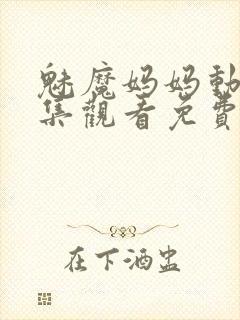 魅魔妈妈動
集觀看免費
在下酒盅